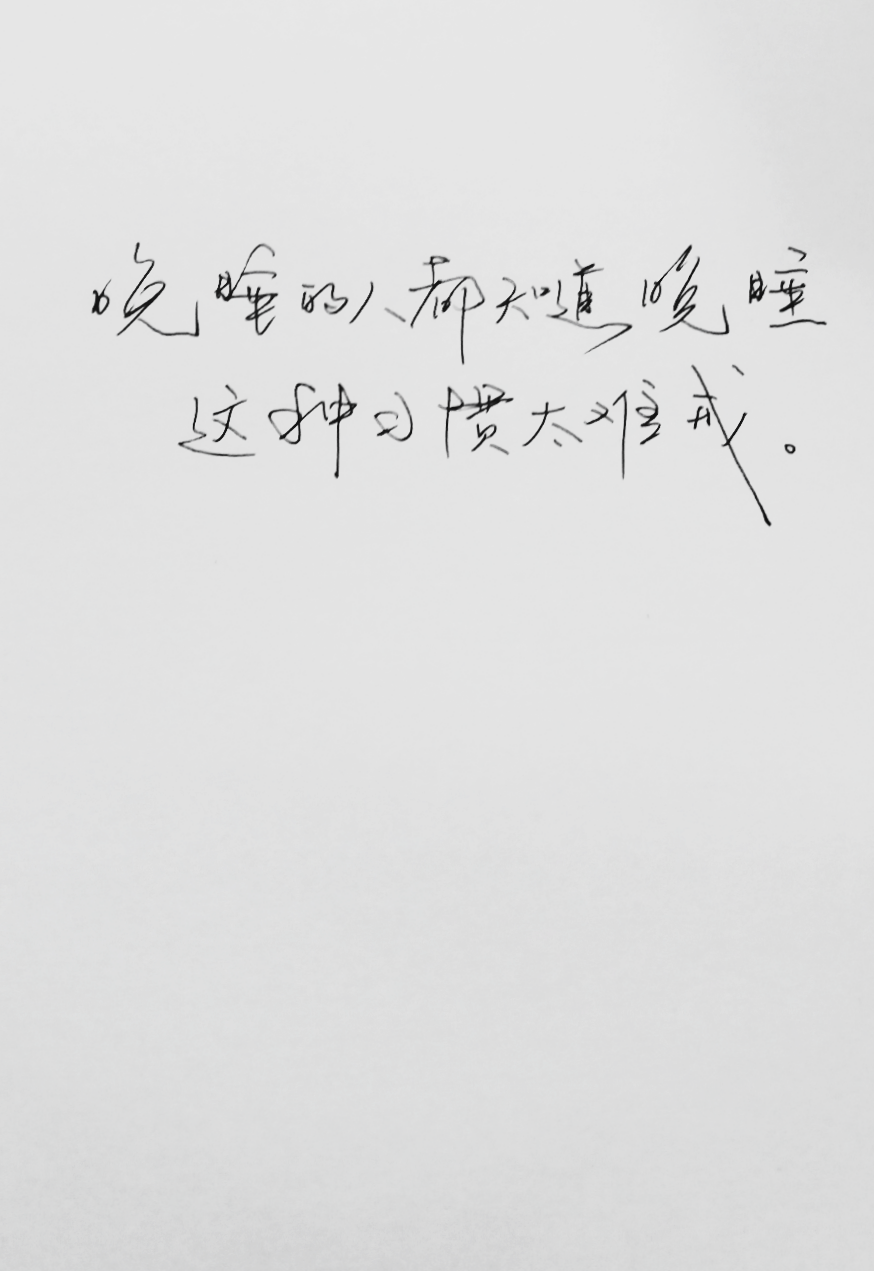 晚睡的人都知道晚睡
这种习惯太难戒。